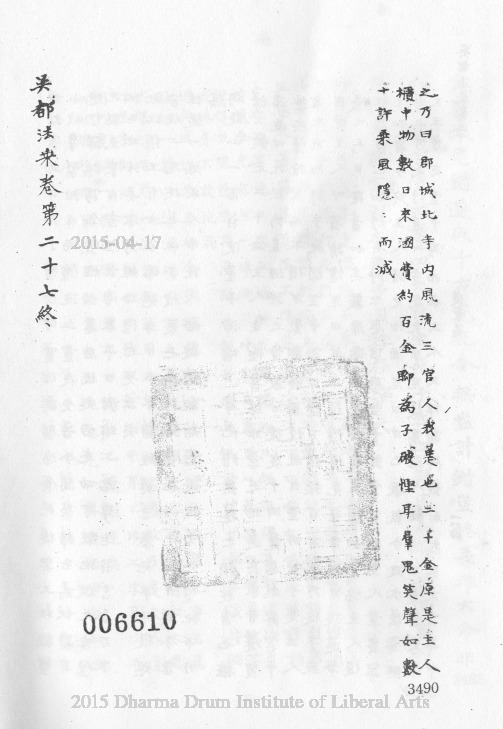 之乃曰郡城北寺內風流三官人我是也三千金原是主人
櫃中物數日來酒貲約百金聊為子破慳耳羣鬼笑聲如數
十許乘風隱〻而滅
吳都法乘卷第二十七終
2015-04-17
006610
3490
2015 Dharma Drum Institute of Liberal Arts